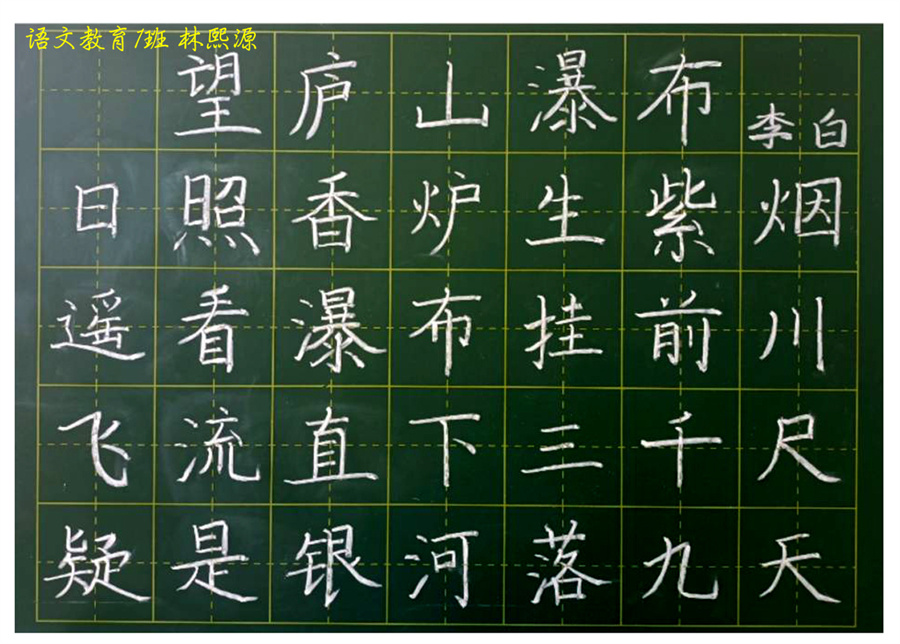 语文教育1班 林熙源
望庐山瀑布 李白
日照香炉生紫烟
遥看瀑布挂前川
飞流直下三千尺
疑是银河落九天